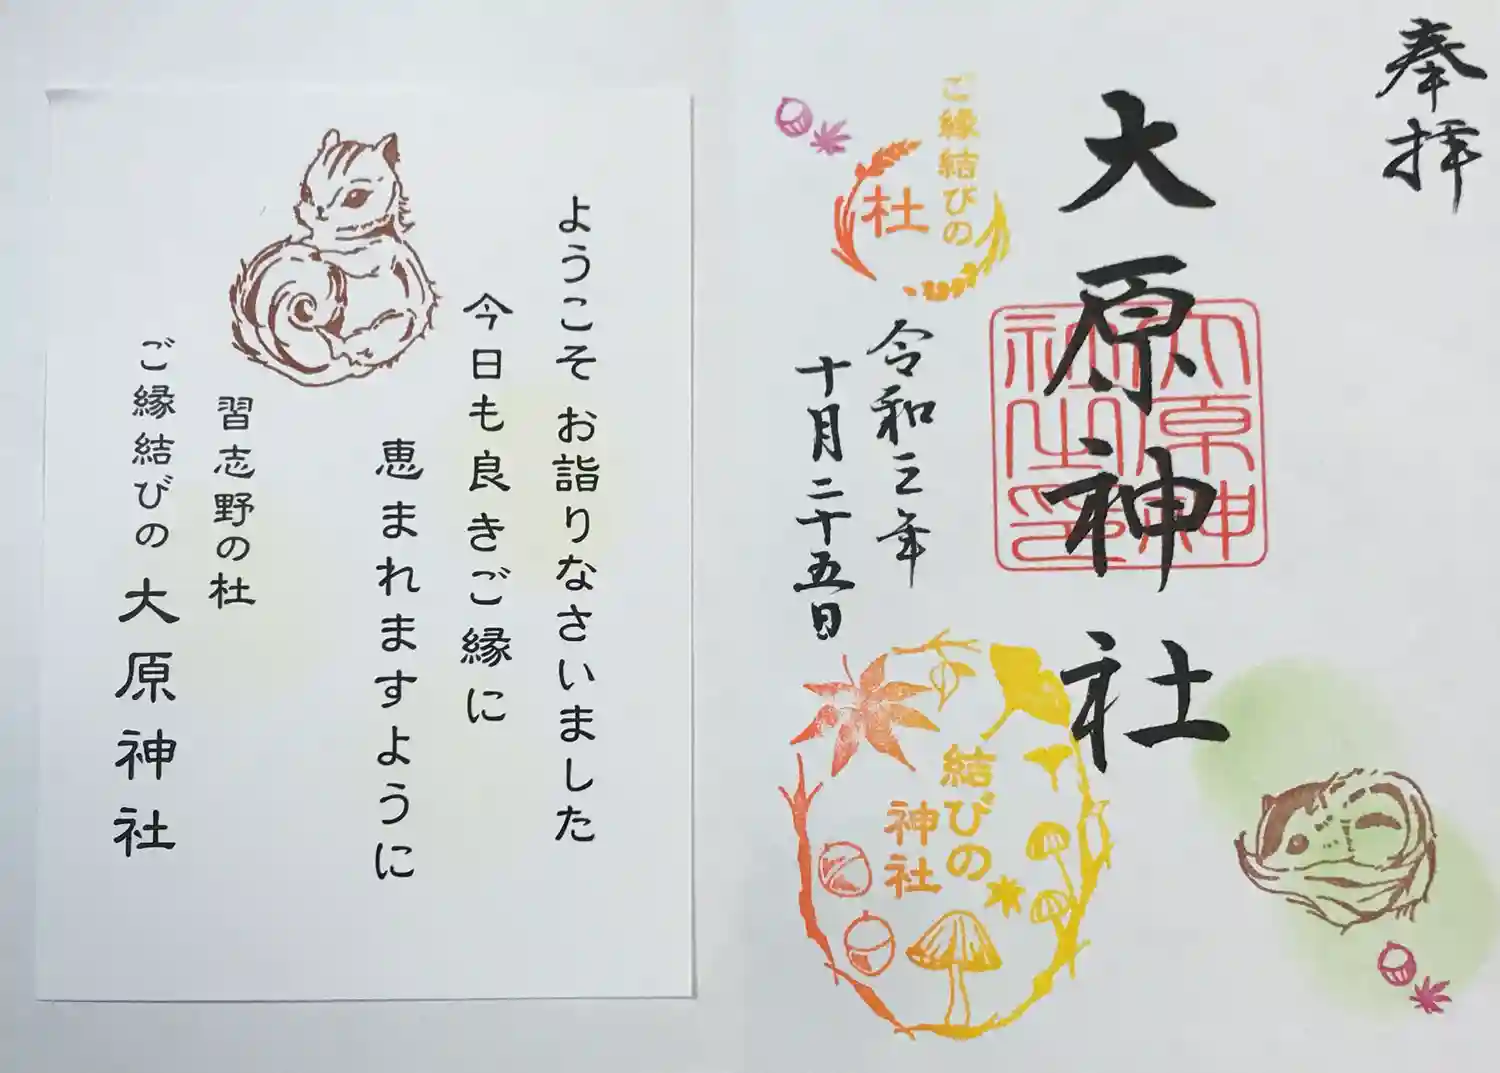 奉拝
大原神社
大原神社之印
ご縁結びの
杜
令和三年
十月二十五日
結びの
神社
ようこそ お詣りなさいました
今日も良きご縁に
恵まれますように
習志野の杜
ご縁結びの 大原神社